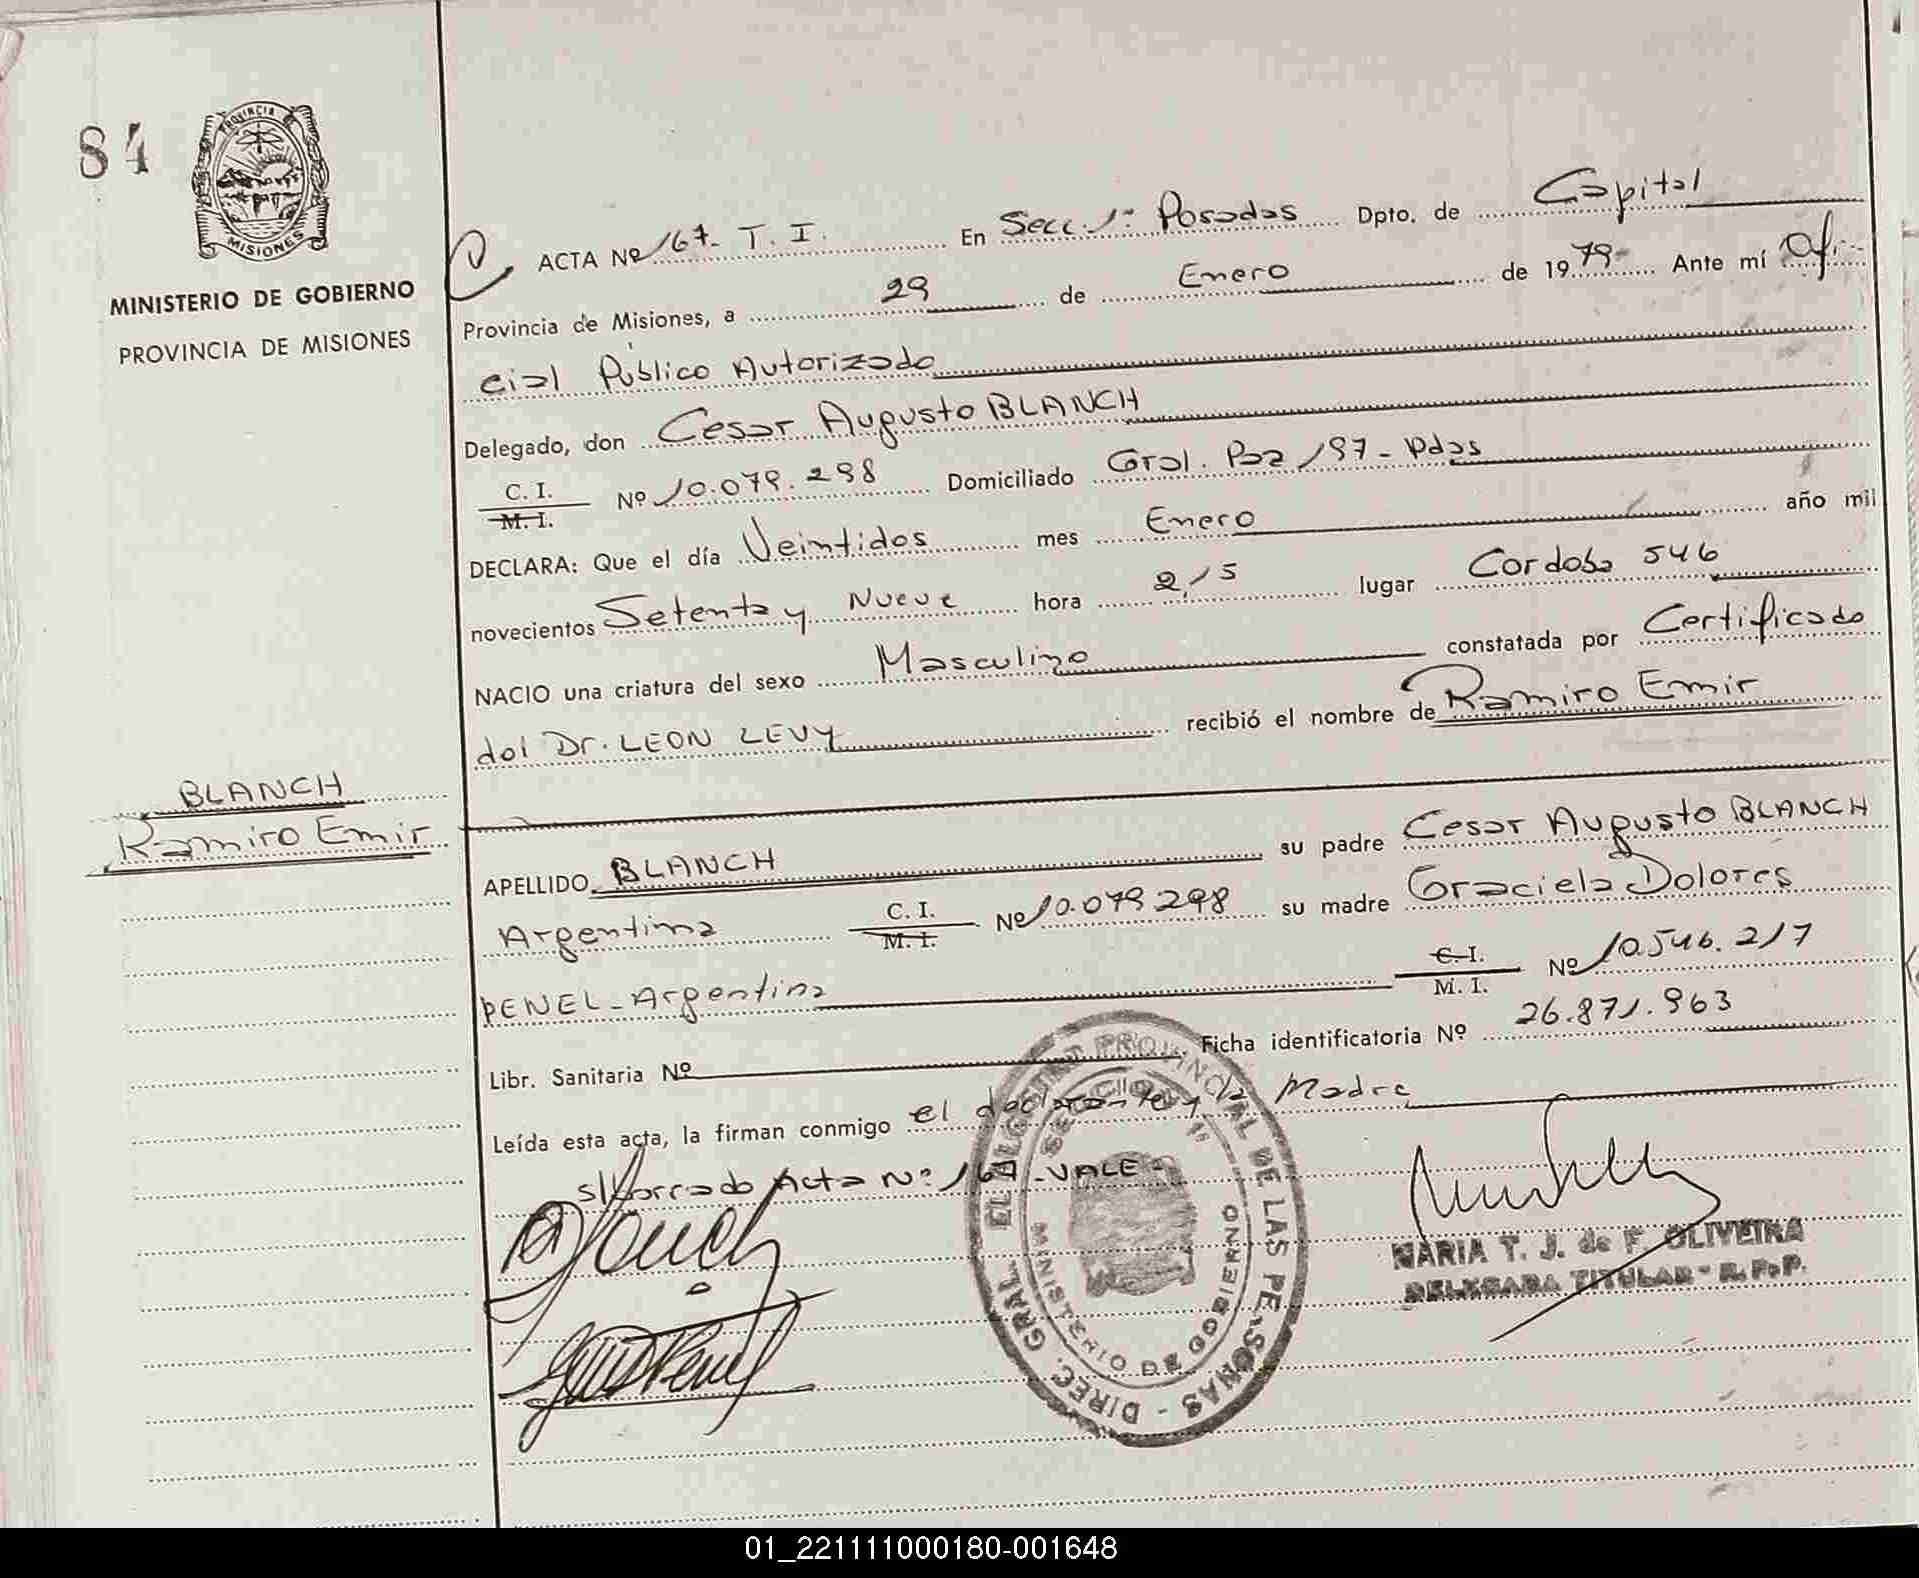 84
PROVINCIA DE
MISIONES
MINISTERIO DE GOBIERNO
PROVINCIA DE MISIONES
ACTA Nº 167- T. I. En Secc. 1º Posadas Dpto. de Capital
Provincia de Misiones, a 29 de Enero de 1979- Ante mí Ofi-
cial Público Autorizado
Delegado, don Cesar Augusto BLANCH
C. I.
M. I. Nº 10.079.298 Domiciliado Gral. Paz 197- Pdas
DECLARA: Que el día Veintidos mes Enero año mil
novecientos Setenta y Nueve hora 2,15 lugar Cordoba 546
NACIO una criatura del sexo Masculino constatada por Certificado
del Dr. LEON LEVY recibió el nombre de Ramiro Emir
BLANCH
Ramiro Emir
APELLIDO BLANCH su padre Cesar Augusto BLANCH
Argentina C. I.
M. I. Nº 10.079.298 su madre Graciela Dolores
PENEL - Argentina C. I.
M. I. Nº 10.546.217
Libr. Sanitaria Nº Ficha identificatoria Nº 26.871.963
Leída esta acta, la firman conmigo el declarante y la Madre
s/borrado Acta Nº 167 - VALE-
DIREC. GRAL. PROVINCIAL DE LAS PERSONAS
MINISTERIO DE GOBIERNO
MARIA T. J. de F. OLIVEIRA
DELEGADA TITULAR - R. P. P.
01_221111000180-001648